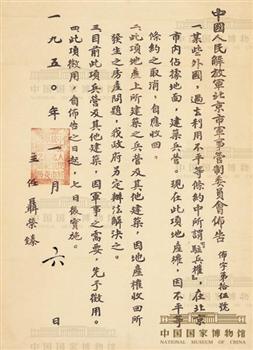 中國人民解放軍北京市軍事管制委員會佈告
佈字第拾伍號
一某些外國,過去利用不平等條約中所謂「駐兵權」,在北京
市內佔據地面,建築兵營。現在此項地產權,因不平等
條約之取消,自應收回。
二此項地產上所建築之兵營及其他建築,因地產權收回所
發生之房產問題,我政府另定辦法解決之。
三目前此項兵營及其他建築,因軍事之需要,先予徵用。
四此項徵用,自佈告之日起,七日後實施。
主任 聶榮臻
一九五〇年一月六日
中国国家博物馆
NATIONAL MUSEUM OF CHINA